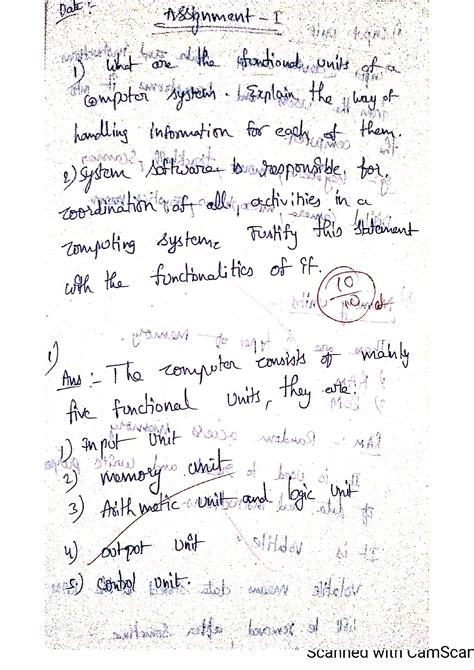 Date :
Assignment - I
1) What are the functional units of a
computer system. Explain the way of
handling information for each of them.
2) System software is responsible for
coordination of all activities in a
computing system. Justify this statement
with the functionalities of it.
10
10
1)
Ans :- The computer consists of mainly
five functional units, they are.
1) Input Unit
2) memory unit
3) Arithmetic unit and logic unit
4) output unit
5) control unit.
Scanned with CamScan